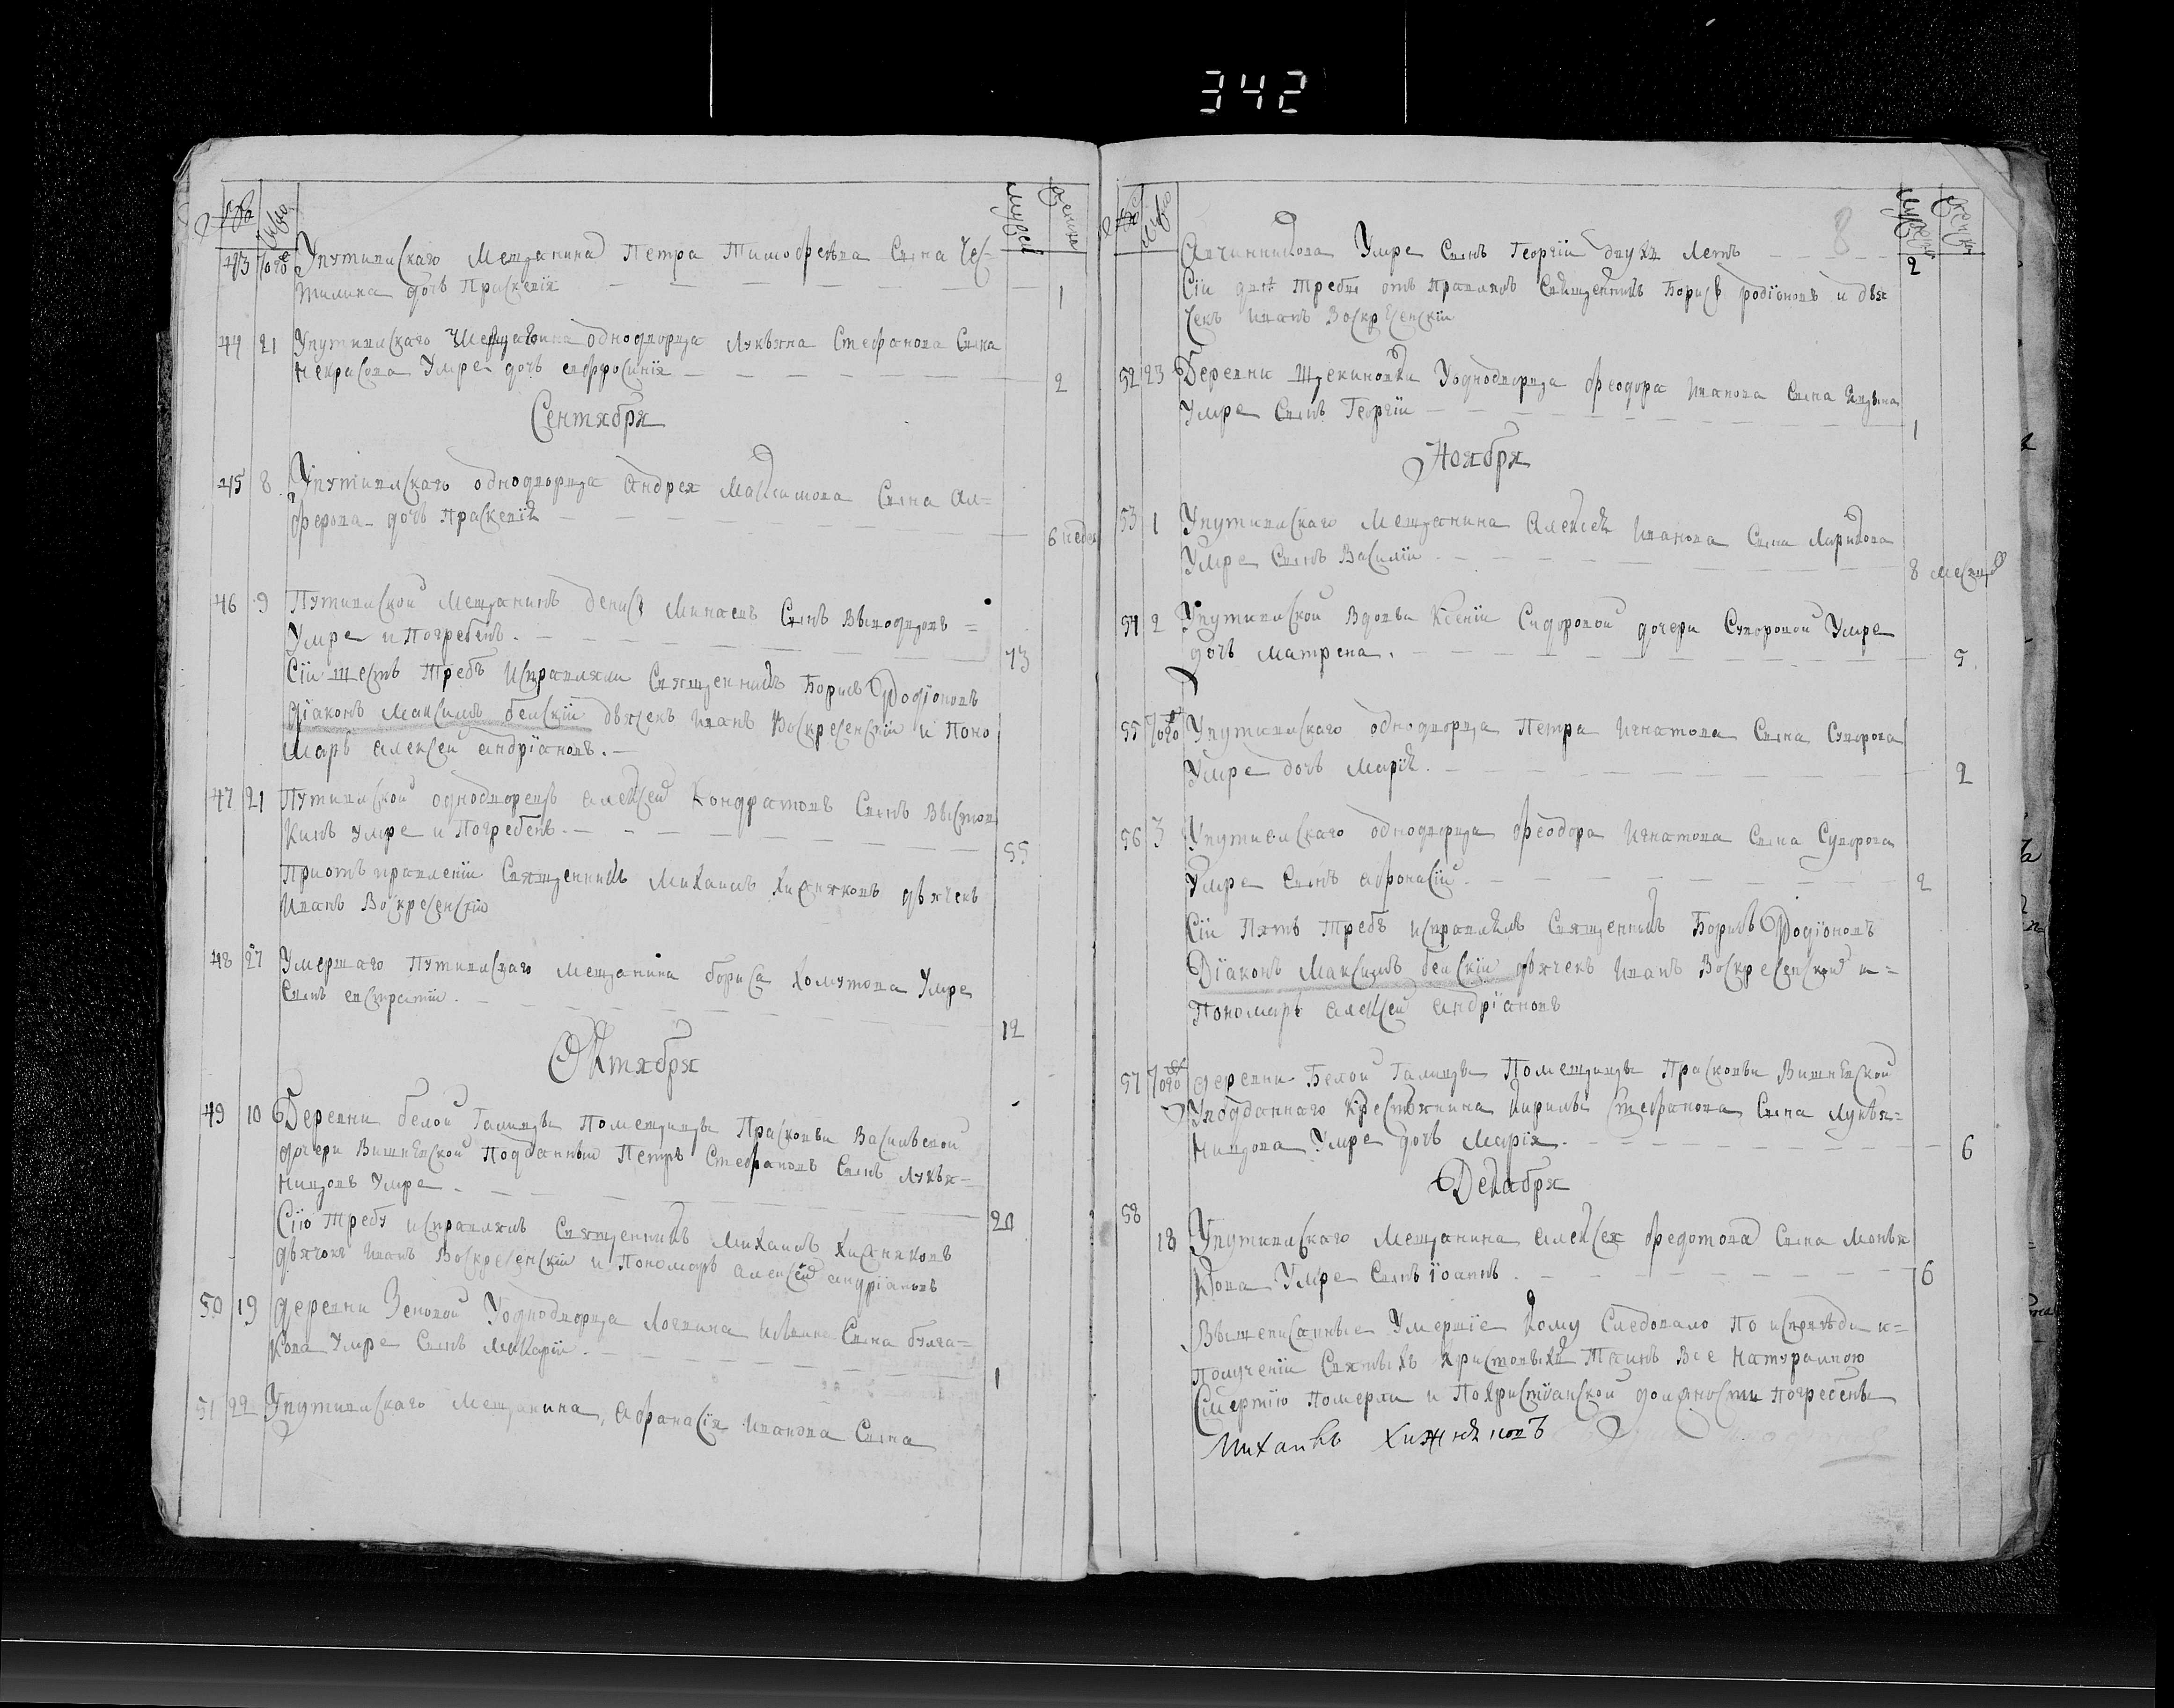 342
число мужес женска
43 того Упутивлскаго Мещанина Петра Тимофеѣва Сына Чес=
тилина дочь Праскевія 1
44 21 Упутивлскаго однодворца Лукьяна Стефанова Сына
Некрасова Умре дочь евфросинія 2
Сентября
45 8 Упутивлскаго однодворца Андрея Максимова Сына Ал=
ферова дочь Праскевія 6 недел
46 9 Путивлской Мещанинъ денисъ Минаевъ Сынъ
Умре и Погребенъ. 73
Сіи шесть Требъ Исправляли Священникъ Борисъ Родіоновъ
Діаконъ Максимъ белскіи дьячекъ Иванъ Воскресенскіи и Поно
марь алексеи андріановъ.
47 21 Путивлской однодворецъ алексеи Кондратовъ Сынъ Выстов
кинъ умре и Погребенъ. 55
Приотъправленіи Священникъ Михаилъ Хижняковъ дьячекъ
Иванъ Воскресенскіи
48 27 Умершаго Путивлскаго мещанина бориса Холутова Умре
Сынъ евстратіи. 12
Октября
49 10 Деревни белой Галицы Помещицы Прасковьи Васильевой
дочери Вишневской Подданный Петръ Стефановъ Сынъ Лукья=
нищовъ Умре. 20
Сію Требу исправлялъ Священникъ Михаилъ Хижняковъ
дьячокъ Иванъ Воскресенскіи и Пономарь алексеи андріановъ
50 19 деревни Зеновой Уоднодворца Логвина Сына булга=
кова Умре Сынъ Макаріи. 1
51 22 Упутивлскаго Мещанина, Афанасія Иванова Сына
8
число мужес женска
Авчинникова Умре Сынъ Георгіи двухъ Летъ 2
Сіи две Требы отъправлялъ Священникъ Борисъ родіоновъ и дья
чекъ Иванъ Воскресенскіи
52 23 Деревни Щекиновки Уоднодворца Феодора Иванова Сына
Умре Сынъ Георгіи 1
Ноября
53 1 Упутивлскаго Мещанина Алексея Иванова Сына Ларикова
Умре Сынъ Василіи 8 месяцов
54 2 Упутивлской Вдовы Ксеніи Сидоровой дочери Суворовой Умре
дочь Матрена. 5
55 того Упутивлскаго однодворца Петра Игнатова Сына Суворова
Умре дочь Марія. 2
56 3 Упутивлскаго однодворца Феодора Игнатова Сына Суворова
Умре Сынъ афонасіи. 2
Сіи Пять Требъ исправлялъ Священникъ Борисъ Родіоновъ
Діаконъ Максимъ белскіи дьячекъ Иванъ Воскресенской и=
Пономарь алексеи андріановъ
57 того деревни Белой Галицы Помещицы Прасковьи Вишневской
Уподданнаго Крестьянина Кирилы Стефанова Сына Лукья=
нищова Умре дочь Марія. 6
Декабря
58
18 Упутивлскаго Мещанина алексея Федотова Сына Монья
кова Умре Сынъ Іоаннъ. 6
Вышеписанные Умершіе Кому Следовало По исповѣди и=
Полученіи Святыхъ Христовыхъ Таинъ Все Натуралною
Смертію Померли и Похристіанской должности Погребены
Михаилъ Хижняковъ